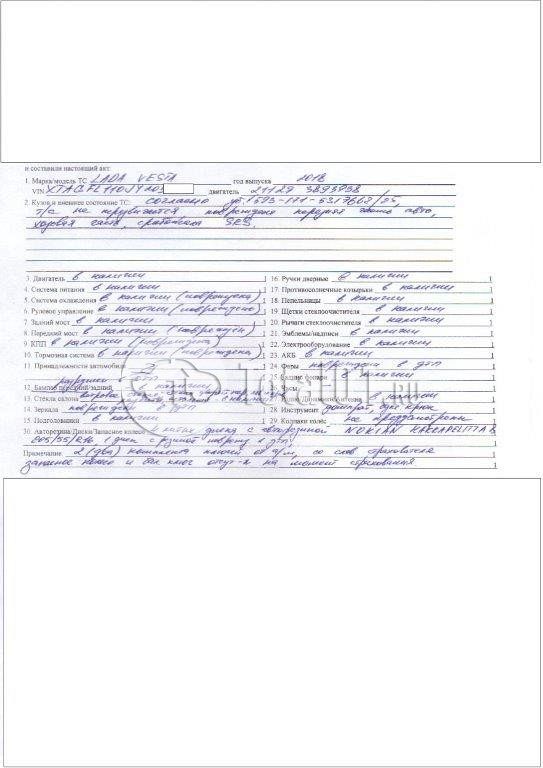 и составили настоящий акт:
1. Марка/модель ТС LADA VESTA год выпуска 2018
VIN XTAGFL110JY103 двигатель 21127 3893938
2. Кузов и внешнее состояние ТС: согласно
т/с не передвигается повреждена передняя часть авто,
ходовая часть, сработали SRS.
3. Двигатель в наличии
4. Система питания в наличии
5. Система охлаждения в наличии (повреждена)
6. Рулевое управление в наличии (повреждено)
7. Задний мост в наличии
8. Передний мост в наличии (поврежден)
9. КПП в наличии (повреждена)
10. Тормозная система в наличии (повреждена)
11. Принадлежности автомобиля
12. Бампер передний/задний
13. Стёкла салона
14. Зеркала повреждены в ДТП
15. Подголовники в наличии
16. Ручки дверные в наличии
17. Противосолнечные козырьки в наличии
18. Пепельницы в наличии
19. Щетки стеклоочистителя в наличии
20. Рычаги стеклоочистителя в наличии
21. Эмблемы/надписи в наличии
22. Электрооборудование в наличии
23. АКБ в наличии
24. Фары повреждены в ДТП
25. Задние фонари в наличии
26. Часы
в наличии
28. Инструмент домкрат, букс. крюк
29. Колпаки колёс не предусмотрены
30. Авторезина/Диски/Запасное колесо литых диска с авторезиной NOKIAN HAKKAPELIITTA 8
205/55/R16 1 диск с резиной поврежд. в ДТП
Примечание 2 (два) комплекта ключей от а/м, со слов страхователя
запасное колесо и бал. ключ отсут-л на момент страхования
TOTGUT.RU